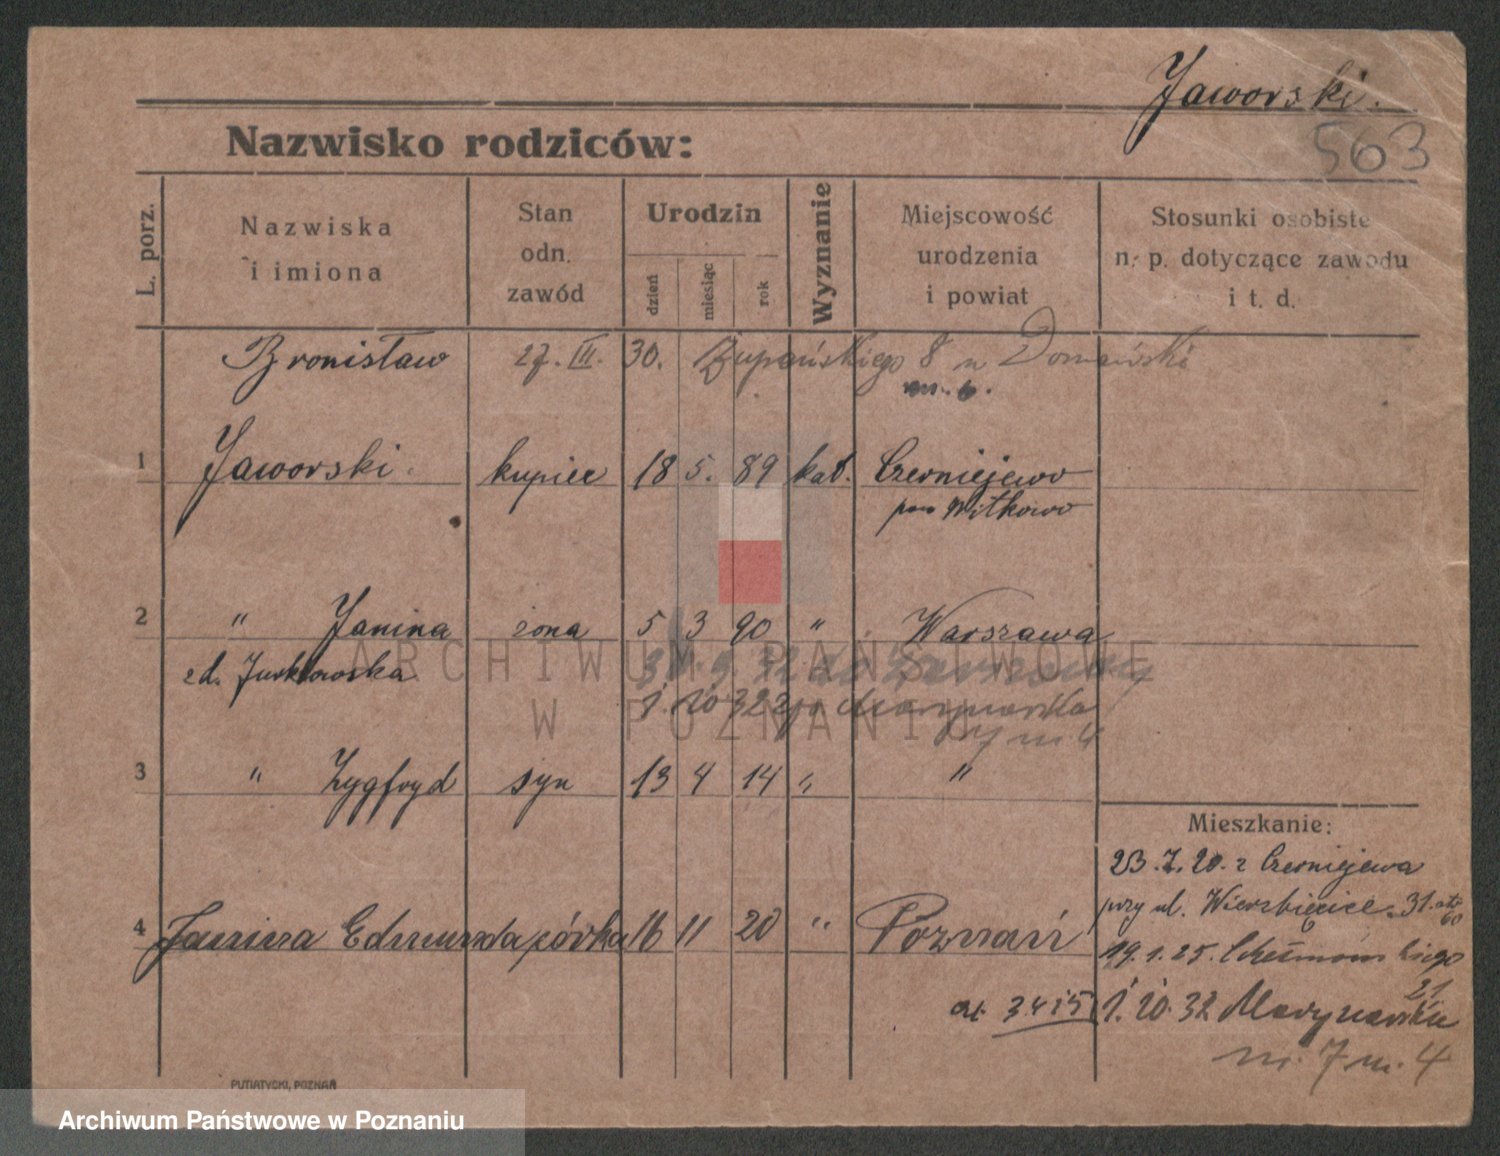 Jaworski.
563
Nazwisko rodziców:
L. porz.
Nazwiska i imiona
Stan odn. zawód
Urodzin
dzień
miesiąc
rok
Wyznanie
Miejscowość urodzenia i powiat
Stosunki osobiste n. p. dotyczące zawodu i t. d.
Bronisław 27. III. 30. Żupańskiego 8 u Domański
m. 6.
1 Jaworski kupiec 18 5. 89 kat. Czerniejewo
pow Witkowo
2 " Janina żona 5 3 90 " Warszawa
zd. Jurkowska
1. 10 32 Marynarska
7 m 4
3 " Zygfryd syn 13 4 14 " "
Mieszkanie:
23.7.20. z Czerniejewa
przy ul. Wierzbięcice 31.
4 Janina Edmunda córka 16 11 20 " Poznań
19.1.25. Chełmońskiego
21
3415
1. 10. 32 Marynarska
nr. 7 m. 4
PUTIATYCKI, POZNAŃ
ARCHIWUM PAŃSTWOWE
W POZNANIU
Archiwum Państwowe w Poznaniu